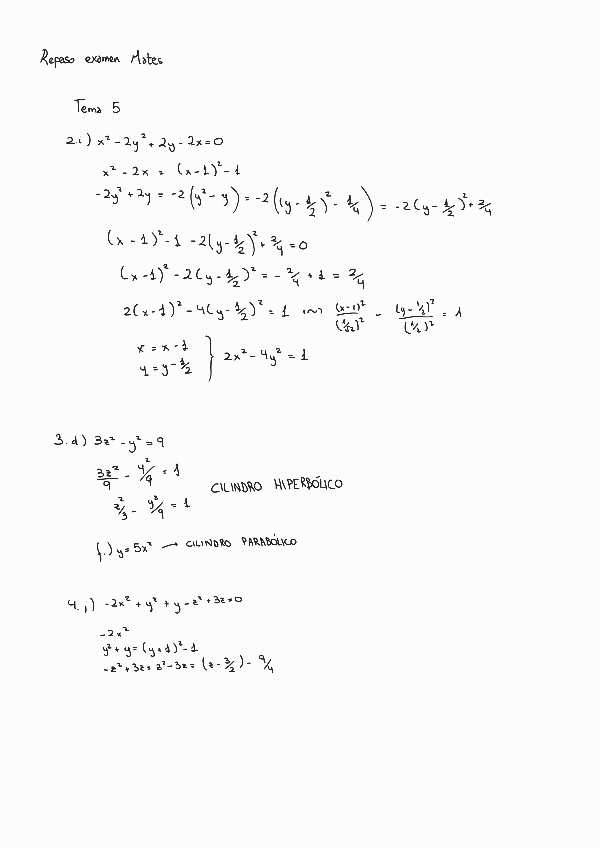 Repaso examen Mates
Tema 5
2.i) x² - 2y² + 2y - 2x = 0
x² - 2x = (x-1)² - 1
-2y² + 2y = -2(y² - y) = -2((y - 1/2)² - 1/4) = -2(y - 1/2)² + 2/4
(x - 1)² - 1 - 2(y - 1/2)² + 2/4 = 0
(x - 1)² - 2(y - 1/2)² = -2/4 + 1 = 2/4
2(x-1)² - 4(y - 1/2)² = 1 ~ (x-1)²/(1/√2)² - (y - 1/2)²/(1/2)² = 1
x = x - 1
y = y - 1/2 } 2x² - 4y² = 1
3. d) 3z² - y² = 9
3z²/9 - y²/9 = 1
z²/3 - y²/9 = 1 CILINDRO HIPERBÓLICO
f.) y = 5x² → CILINDRO PARABÓLICO
4. j) -2x² + y² + y - z² + 3z = 0
-2x²
y² + y = (y + 1)² - 1
-z² + 3z = z² - 3z = (z - 3/2) - 9/4